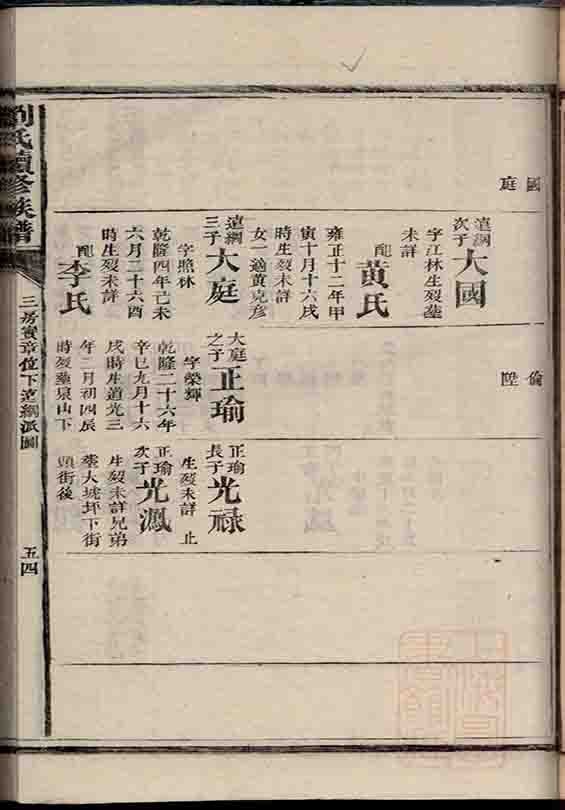 國
庭
達綱
次子
大國
字江林生歿塟
未詳
配
黃氏
雍正十二年甲
寅十月十六戌
時生歿未詳
女一適黄克彥
達綱
三子
大庭
字照林
乾隆四年己未
六月二十六酉
時生歿未詳
配
李氏
倫
陞
大庭
之子
正瑜
字榮輝
乾隆二十六年
辛巳九月十六
戌時生道光三
年二月初四辰
時歿塟泉山下
正瑜
長子
光祿
生歿未詳 止
正瑜
次子
光鳳
生歿未詳兄弟
塟大坵坪下街
頭街後
劉氏續修族譜
三房賓章位下達綱派圖
五四